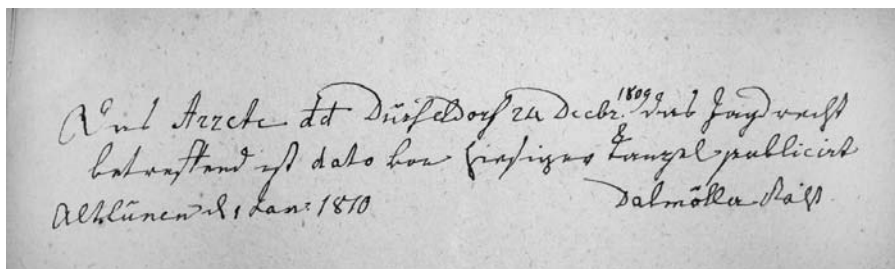 Das Arrete dd Düsseldorf 24 Decbr. 1809 das Jagdrecht
betreffend ist dato von hiesiger Canzel publicirt
Altlünen d. 1 Jan: 1810 Dalmöller